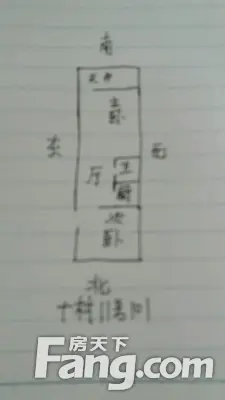 南
主卧
东
西
厅
卫
厨
次卧
北
十村11号101
房天下
Fang.com